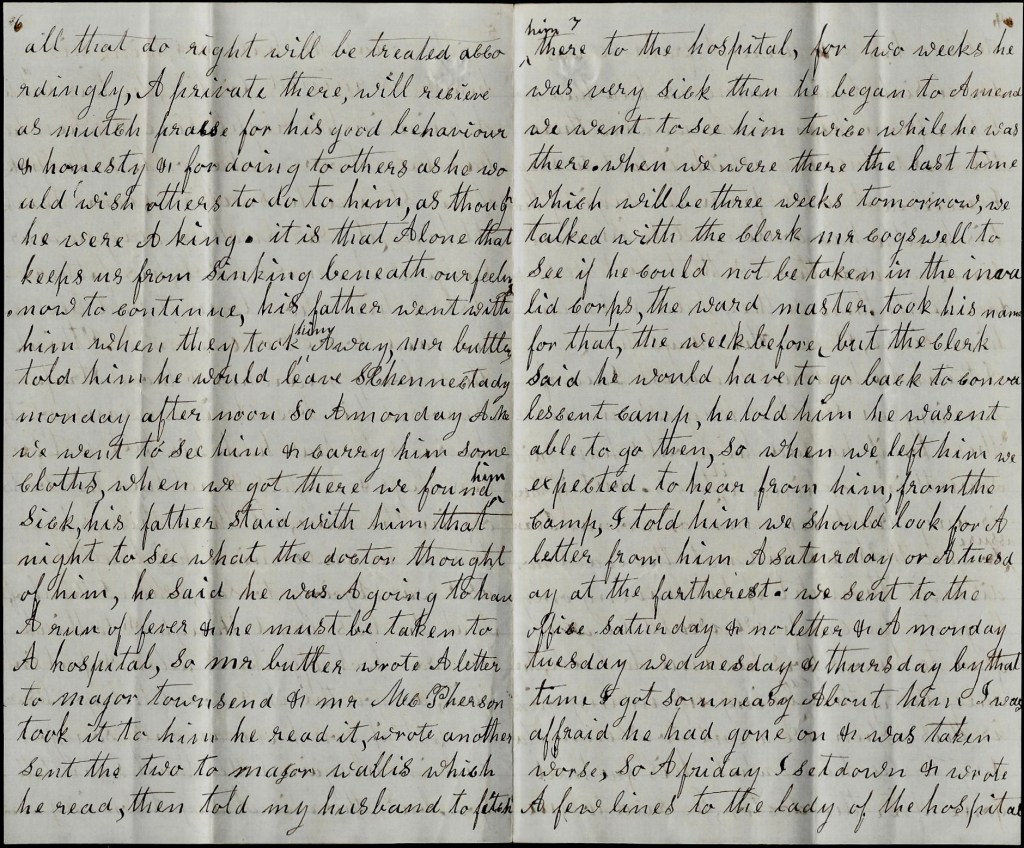 6
all that do right will be treated acco
rdingly, A private there, will recieve
as mutch praise for his good behaviour
& honesty & for doing to others as he wo
uld wish others to do to him, as though
he were A king. it is that Alone that
keeps us from sinking beneath our feelings
now to continue, his father went with
him when they took him Away, mr buttler
told him he would leave SChennectady
monday after noon so A monday A.M
we went to see him & carry him some
cloths, when we got there we found him
sick, his father staid with him that
night to see what the doctor thought
of him, he said he was A going to have
A run of fever & he must be taken to
A hospital, so mr butler wrote A letter
to major townsend & mr McPherson
took it to him he read it, wrote another
sent the two to major wallis which
he read, then told my husband to fetch
7
him there to the hospital, for two weeks he
was very sick then he began to Amend
we went to see him twice while he was
there. when we were there the last time
which will be three weeks tomorrow, we
talked with the Clerk mr Cogswell to
see if he could not be taken in the inva
lid Corps, the ward master. took his name
for that, the week before, but the Clerk
said he would have to go back to conva
lescent camp, he told him he wasent
able to go then, so when we left him we
expected to hear from him, from the
Camp, I told him we should look for A
letter from him A saturday or A tuesd
ay at the fartherest. we sent to the
office saturday & no letter & A monday
tuesday wednesday & thursday by that
time I got so uneasy About him I was
affraid he had gone on & was taken
worse, so A friday I setdown & wrote
A few lines to the lady of the hospital